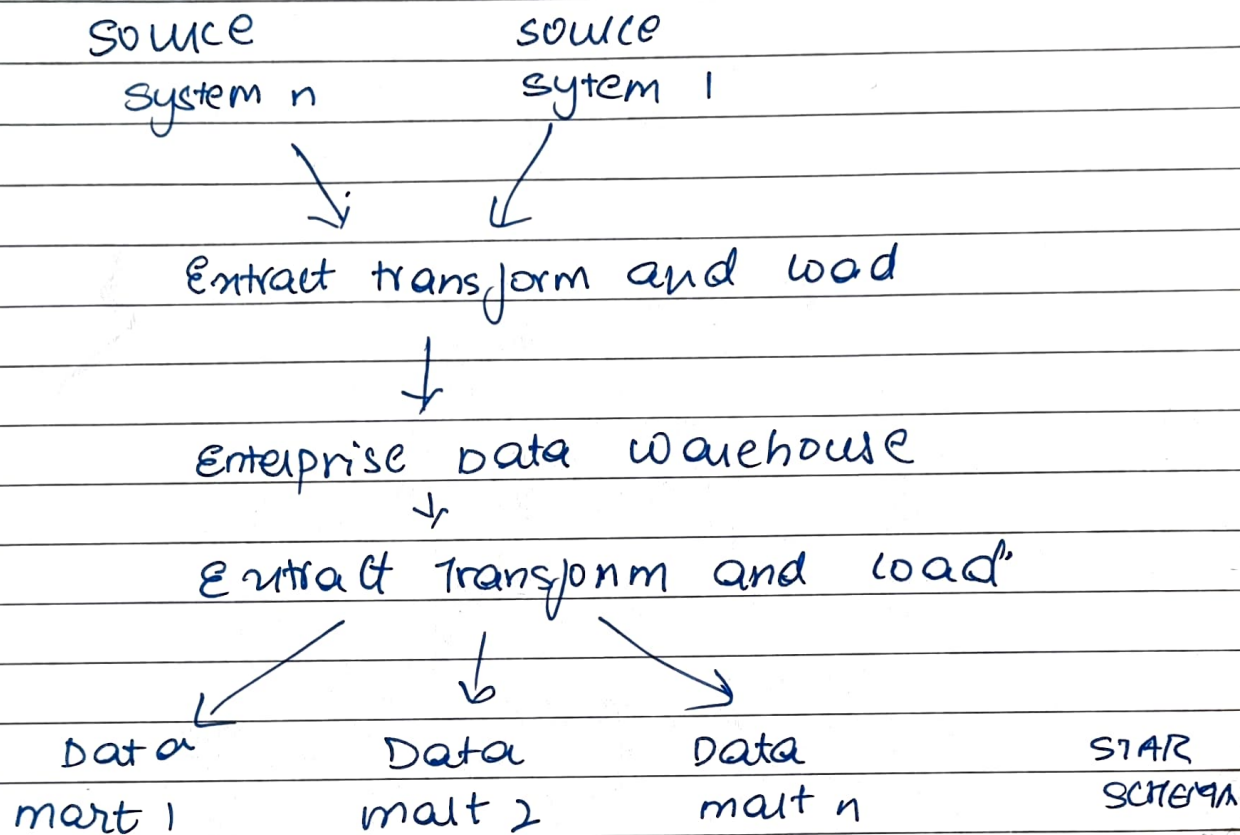 Source source
system n sytem 1
Extract transform and load
Enterprise Data warehouse
Extract Transform and load
Data Data Data STAR
mart 1 mart 2 mart n SCHEMA